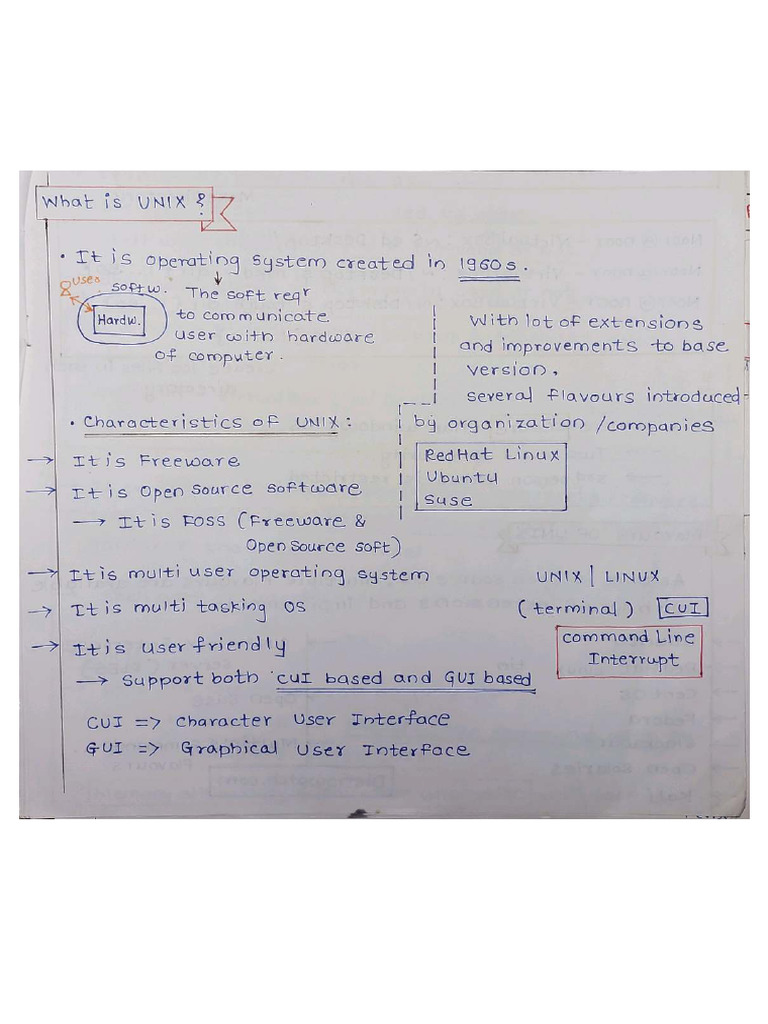 What is UNIX ?
• It is operating system created in 1960s.
User
softw.
Hardw.
The soft reqr
to communicate
user with hardware
of computer.
With lot of extensions
and improvements to base
version,
several flavours introduced
by organization /companies
RedHat Linux
Ubuntu
Suse
• Characteristics of UNIX :
→ It is Freeware
→ It is Open Source Software
→ It is FOSS (Freeware &
Open Source Soft)
→ It is multi user operating system
→ It is multi tasking OS
→ It is user friendly
→ Support both CUI based and GUI based
CUI => Character User Interface
GUI => Graphical User Interface
UNIX | LINUX
(terminal) CUI
Command Line
Interrupt